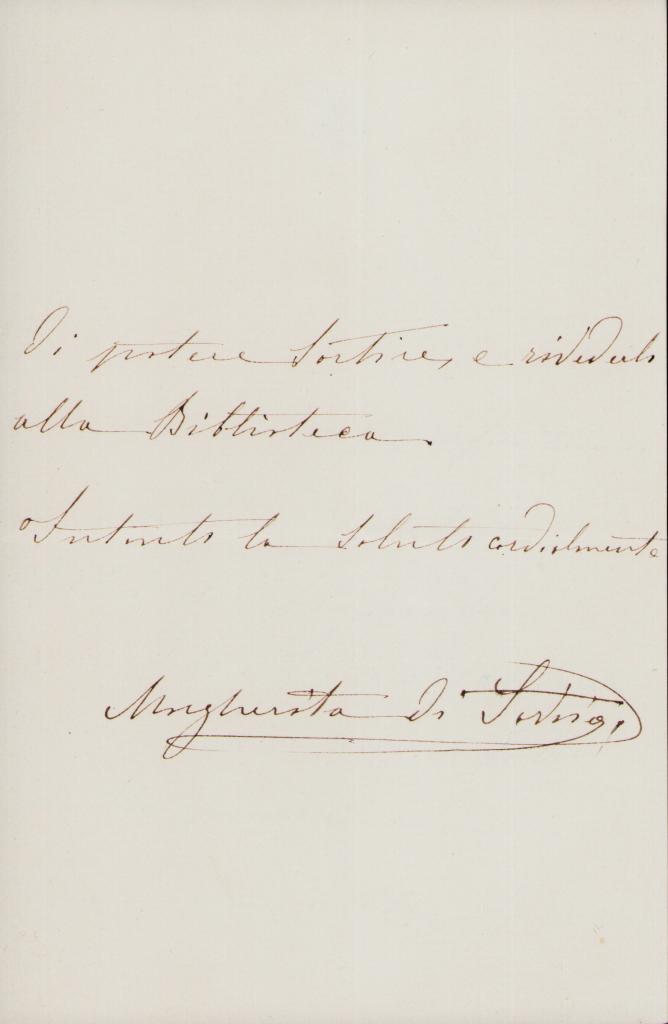 di potere sortire, e rivederlo
alla Biblioteca.
Intanto la saluto cordialmente
Margherita di Savoia